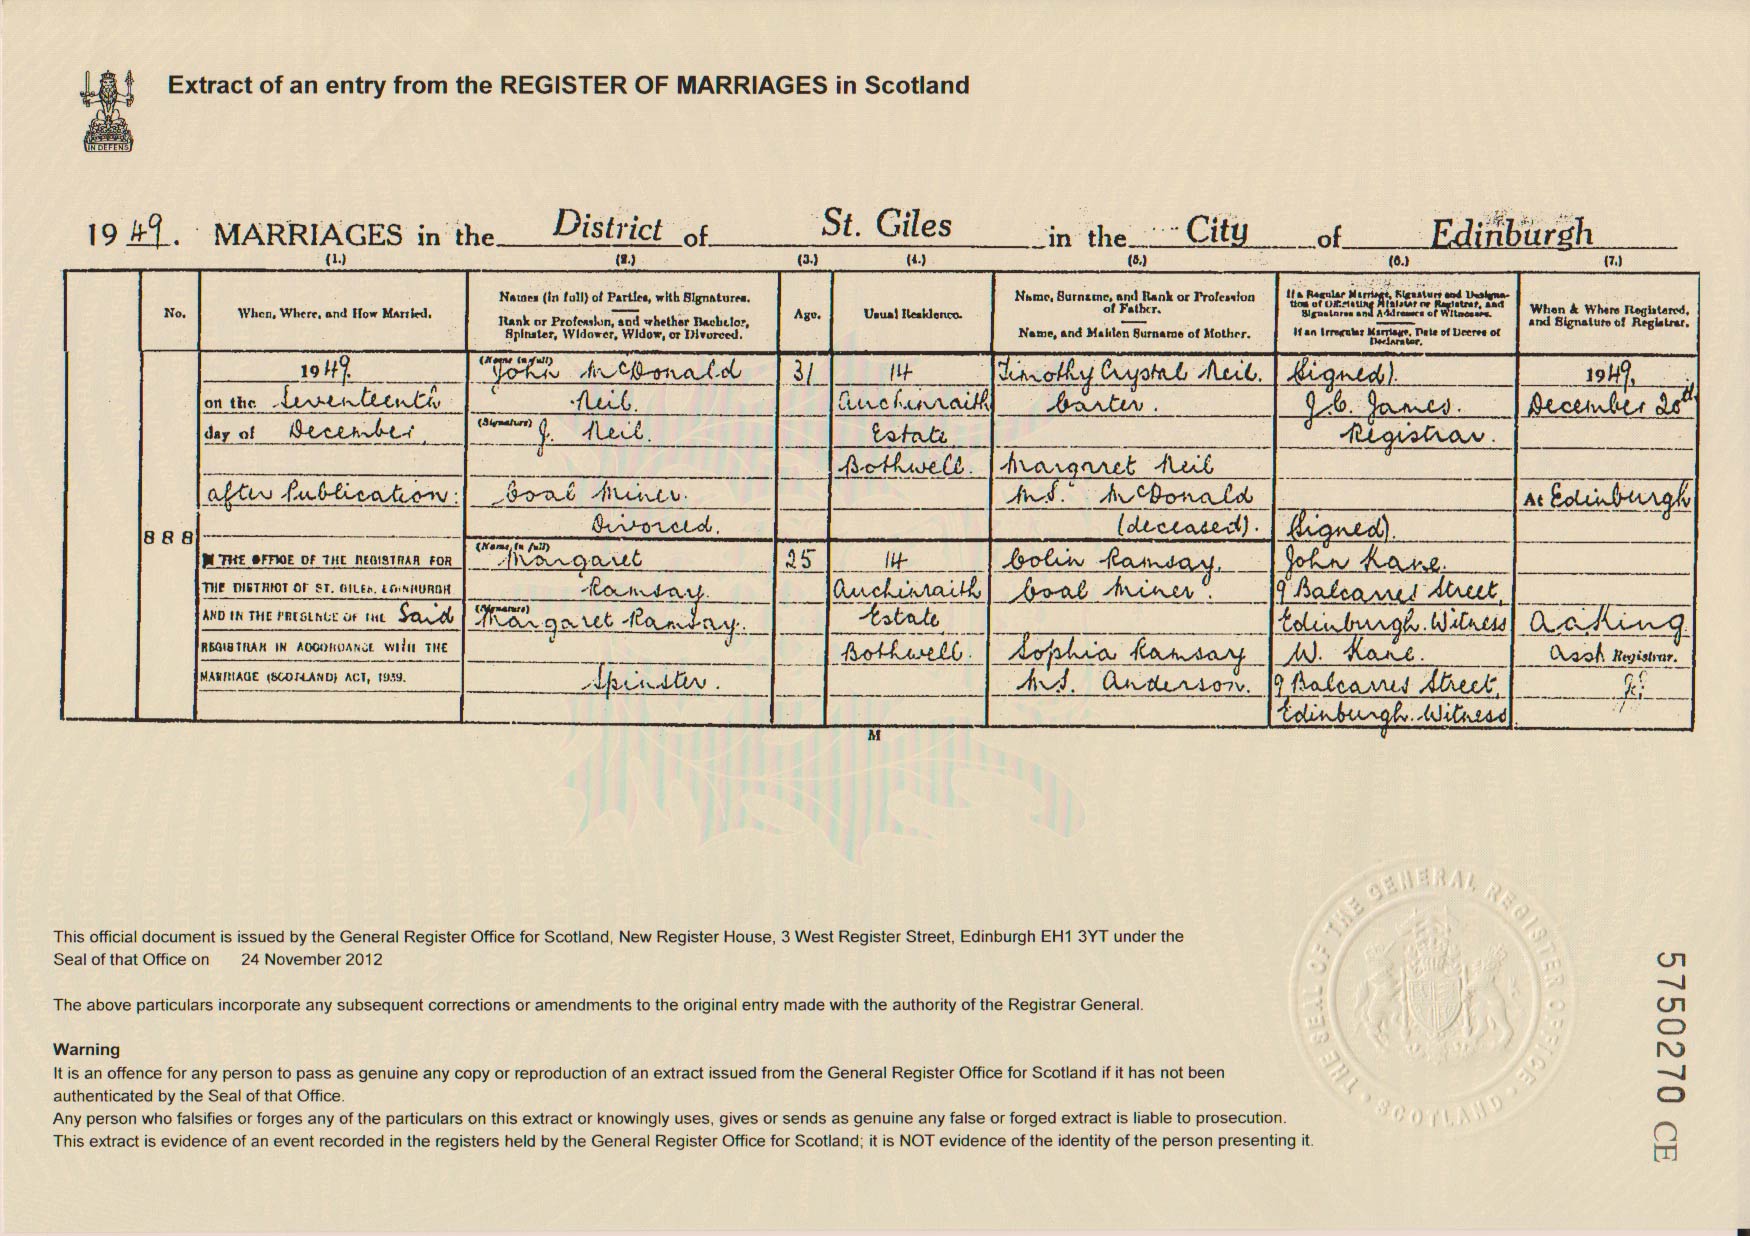 Extract of an entry from the REGISTER OF MARRIAGES in Scotland
IN DEFENS
1949. MARRIAGES in the District of St. Giles in the City of Edinburgh
(1.) (2.) (3.) (4.) (5.) (6.) (7.)
No.
When, Where, and How Married.
Names (in full) of Parties, with Signatures.
Rank or Profession, and whether Bachelor,
Spinster, Widower, Widow, or Divorced.
Age.
Usual Residence.
Name, Surname, and Rank or Profession
of Father.
Name, and Maiden Surname of Mother.
If a Regular Marriage, Signature and Designa-
tion of Officiating Minister or Registrar, and
Signatures and Addresses of Witnesses.
If an Irregular Marriage, Date of Decree of
Declarator.
When & Where Registered,
and Signature of Registrar.
888
1949.
on the Seventeenth
day of December,
after Publication:
THE OFFICE OF THE REGISTRAR FOR
THE DISTRICT OF ST. GILES, EDINBURGH
AND IN THE PRESENCE OF THE Said
REGISTRAR IN ACCORDANCE WITH THE
MARRIAGE (SCOTLAND) ACT, 1939.
(Name in full)
John McDonald
Neil.
(Signature) J. Neil.
Coal Miner.
Divorced.
31
14
Auchinraith
Estate
Bothwell.
Timothy Crystal Neil.
Carter.
Margaret Neil
M.S. McDonald
(deceased).
(Signed).
J.C. James.
Registrar.
1949.
December 20th
At Edinburgh
(Name in full)
Margaret
Ramsay.
(Signature)
Margaret Ramsay.
Spinster.
25
14
Auchinraith
Estate
Bothwell.
Colin Ramsay,
Coal Miner.
Sophia Ramsay
M.S. Anderson.
(Signed).
John Kane.
9 Balcarres Street,
Edinburgh. Witness
W. Kane.
9 Balcarres Street,
Edinburgh. Witness
A.A. King
Asst. Registrar.
M
This official document is issued by the General Register Office for Scotland, New Register House, 3 West Register Street, Edinburgh EH1 3YT under the
Seal of that Office on 24 November 2012
The above particulars incorporate any subsequent corrections or amendments to the original entry made with the authority of the Registrar General.
Warning
It is an offence for any person to pass as genuine any copy or reproduction of an extract issued from the General Register Office for Scotland if it has not been
authenticated by the Seal of that Office.
Any person who falsifies or forges any of the particulars on this extract or knowingly uses, gives or sends as genuine any false or forged extract is liable to prosecution.
This extract is evidence of an event recorded in the registers held by the General Register Office for Scotland; it is NOT evidence of the identity of the person presenting it.
THE SEAL OF THE GENERAL REGISTER OFFICE · SCOTLAND ·
5750270 CE